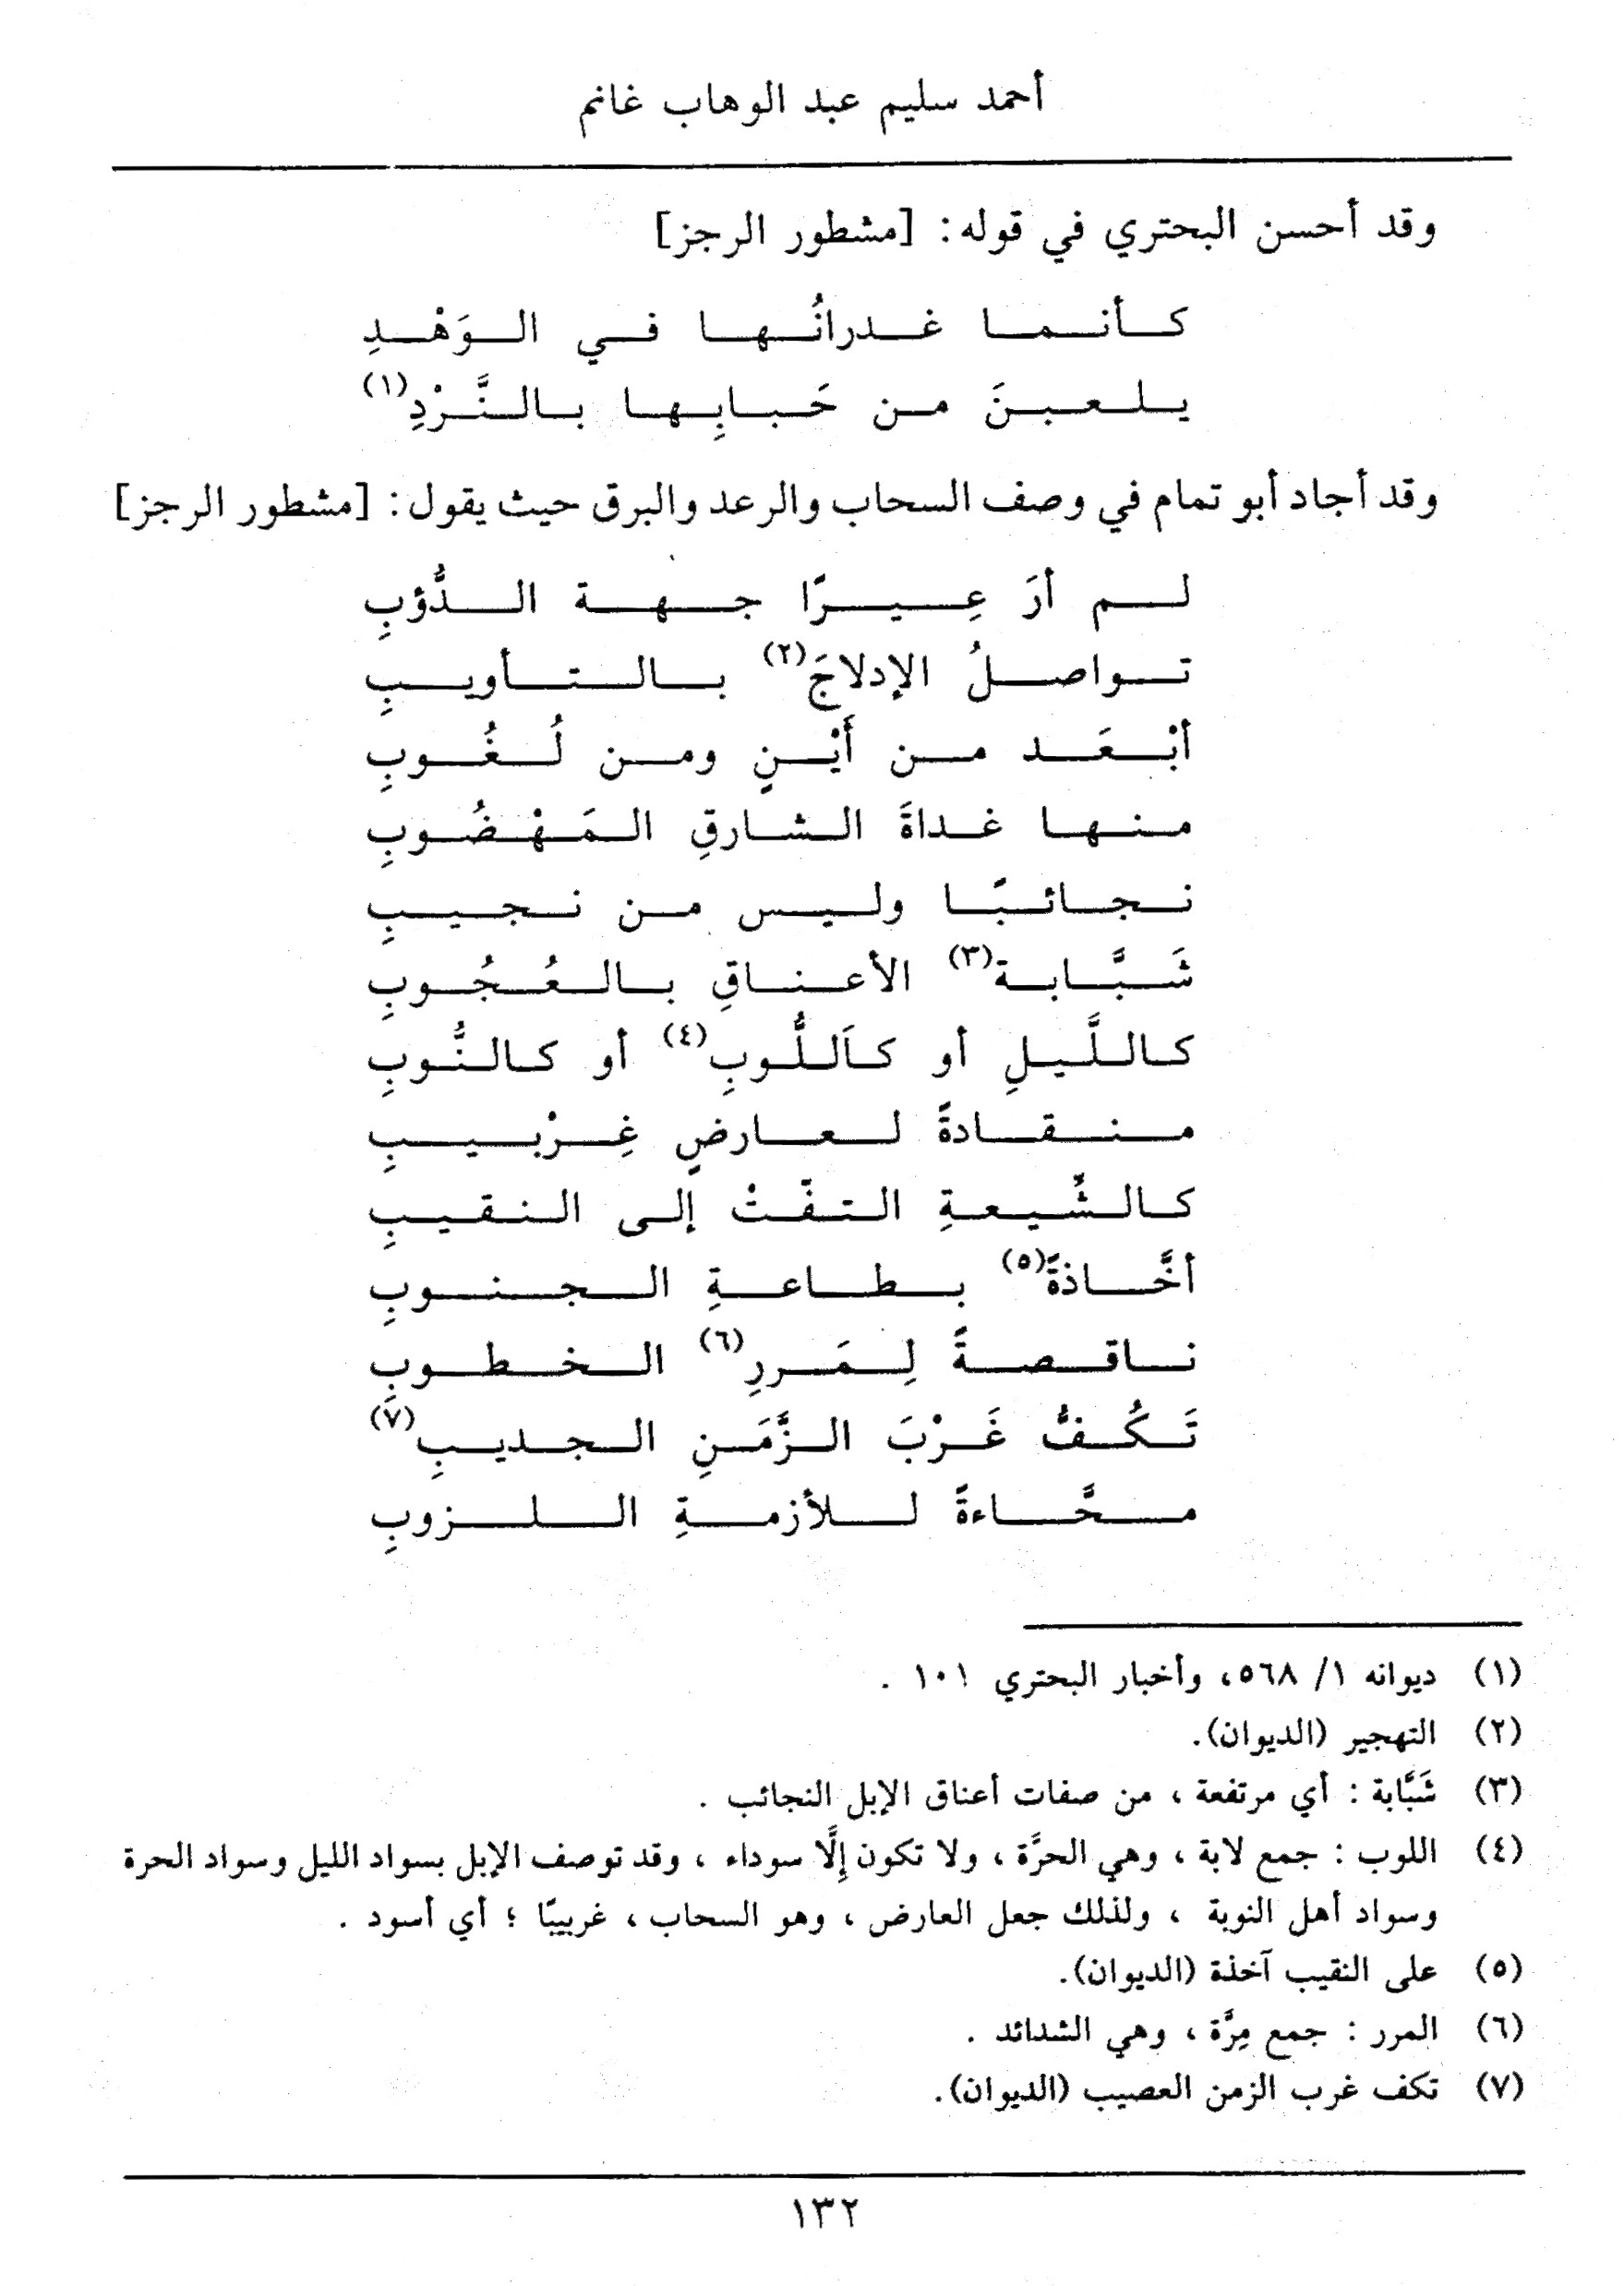 أحمد سليم عبد الوهاب غانم
وقد أحسن البحتري في قوله: [مشطور الرجز]
كأنما غدرانُها في الوَهْدِ
يلعبنَ من حَبابِها بالنَّرْدِ(١)
وقد أجاد أبو تمام في وصف السحاب والرعد والبرق حيث يقول: [مشطور الرجز]
لم أرَ عِيرًا جهة الدُّؤبِ
تواصلُ الإدلاجَ(٢) بالتأويبِ
أبْعَد من أَيْنٍ ومن لُغُوبِ
منها غداةَ الشارقِ المَهْضُوبِ
نجائبًا وليس من نجيبِ
شَبَّابة(٣) الأعناقِ بالعُجُوبِ
كاللَّيلِ أو كاَللُّوبِ(٤) أو كالنُّوبِ
منقادةً لعارضٍ غِرْبيبِ
كالشِّيعةِ التفّتْ إلى النقيبِ
أخَّاذةً(٥) بطاعةِ الجنوبِ
ناقصةً لِمَررِ(٦) الخطوبِ
تَكُفُّ غَرْبَ الزَّمَنِ الجديبِ(٧)
محَّاءةً للأزمةِ اللزوبِ
(١) ديوانه ١/ ٥٦٨، وأخبار البحتري ١٠١ .
(٢) التهجير (الديوان).
(٣) شَبَّابة : أي مرتفعة ، من صفات أعناق الإبل النجائب .
(٤) اللوب : جمع لابة ، وهي الحرَّة ، ولا تكون إلَّا سوداء ، وقد توصف الإبل بسواد الليل وسواد الحرة
وسواد أهل النوبة ، ولذلك جعل العارض ، وهو السحاب ، غربيبًا ؛ أي أسود .
(٥) على النقيب آخذة (الديوان).
(٦) المرر : جمع مِرَّة ، وهي الشدائد .
(٧) تكف غرب الزمن العصيب (الديوان).
١٣٢